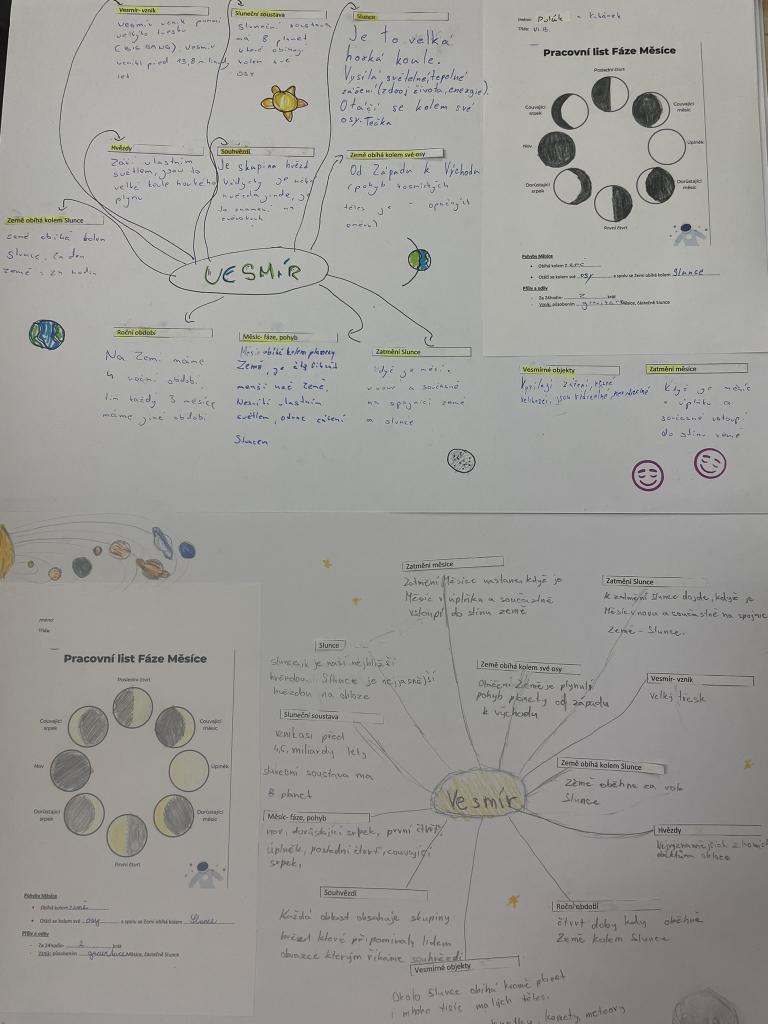 Vesmír- vznik
Vesmír vznik pomocí
velkého třesku
(BIG BANG) Vesmír
vznikl před 13,8 miliardy
let
Sluneční soustava
Sluneční soustava
má 8 planet
které obíhají
kolem své
osy
Slunce
Je to velká
horká koule.
Vysílá světelné, tepelné
záření (zdroj života, energie).
Otáčí se kolem své
osy. Tečka
Hvězdy
Září vlastním
světlem, jsou to
velké koule horkého
plynu
Souhvězdí
Je skupina hvězd
Vždycky je
hvězda jinde,
Země obíhá kolem své osy
Od Západu k Východu
(pohyb kosmických
těles je - opačných
směrů)
Země obíhá kolem Slunce
země obíhá kolem
slunce, za den
země = 24 hodin
VESMÍR
Roční období
Na Zemi máme
4 roční období.
tím každý 3 měsíce
máme jiné období
Měsíc- fáze, pohyb
Měsíc obíhá kolem planety
Země, je
menší než Země.
Nesvítí vlastním
světlem, odráží záření
Sluncem
Zatmění Slunce
když je měsíc
v novu a současně
na spojnici země
a slunce
Vesmírné objekty
jsou
Zatmění měsíce
Když je měsíc
v úplňku a
současně vstoupí
do stínu země
Jméno:
Třída: VI.B.
Pracovní list Fáze Měsíce
Poslední čtvrt
Couvající srpek
Couvající měsíc
Nov
Úplněk
Dorůstající srpek
Dorůstající měsíc
První čtvrt
Pohyby Měsíce
Obíhá kolem Země
Otáčí se kolem své osy a spolu se Zemí obíhá kolem Slunce
Příliv a odliv
Za 24hodin 2 krát
Vznik: působením gravitace Měsíce, částečně Slunce
Jméno:
Třída:
Pracovní list Fáze Měsíce
Poslední čtvrt
Couvající srpek
Couvající měsíc
Nov
Úplněk
Dorůstající srpek
Dorůstající měsíc
První čtvrt
Pohyby Měsíce
Obíhá kolem Země
Otáčí se kolem své osy a spolu se Zemí obíhá kolem Slunce
Příliv a odliv
Za 24hodin 2 krát
Vznik: působením gravitace Měsíce, částečně Slunce
Zatmění měsíce
Zatmění Měsíce nastane, když je
Měsíc v úplňku a současně
vstoupí do stínu země
Zatmění Slunce
K zatmění Slunce dojde, když je
Měsíc v novu a současně na spojnici
Země - Slunce.
Slunce
slunce, je naší nejbližší
hvězdou. Slunce je nejjasnější
hvězdou na obloze
Země obíhá kolem své osy
Otáčení Země je plynulý
pohyb planety od západu
k východu
Vesmír- vznik
velký třesk
Sluneční soustava
vznikasi před
4,6 miliardy lety
sluneční soustava má
8 planet
Země obíhá kolem Slunce
Země oběhne za rok
Slunce
Vesmír
Měsíc- fáze, pohyb
nov, dorůstající srpek, první čtvrť,
úplněk, poslední čtvrť, couvající
srpek,
Hvězdy
Souhvězdí
Každá oblast obsahuje skupiny
hvězd které připomínaly lidem
obrazce kterým říkáme souhvězdí
Roční období
čtvrt doby kdy oběhne
Země kolem Slunce
Vesmírné objekty
Okolo Slunce obíhá kromě planet
i mnoho tisíc malých těles.
komety, meteory